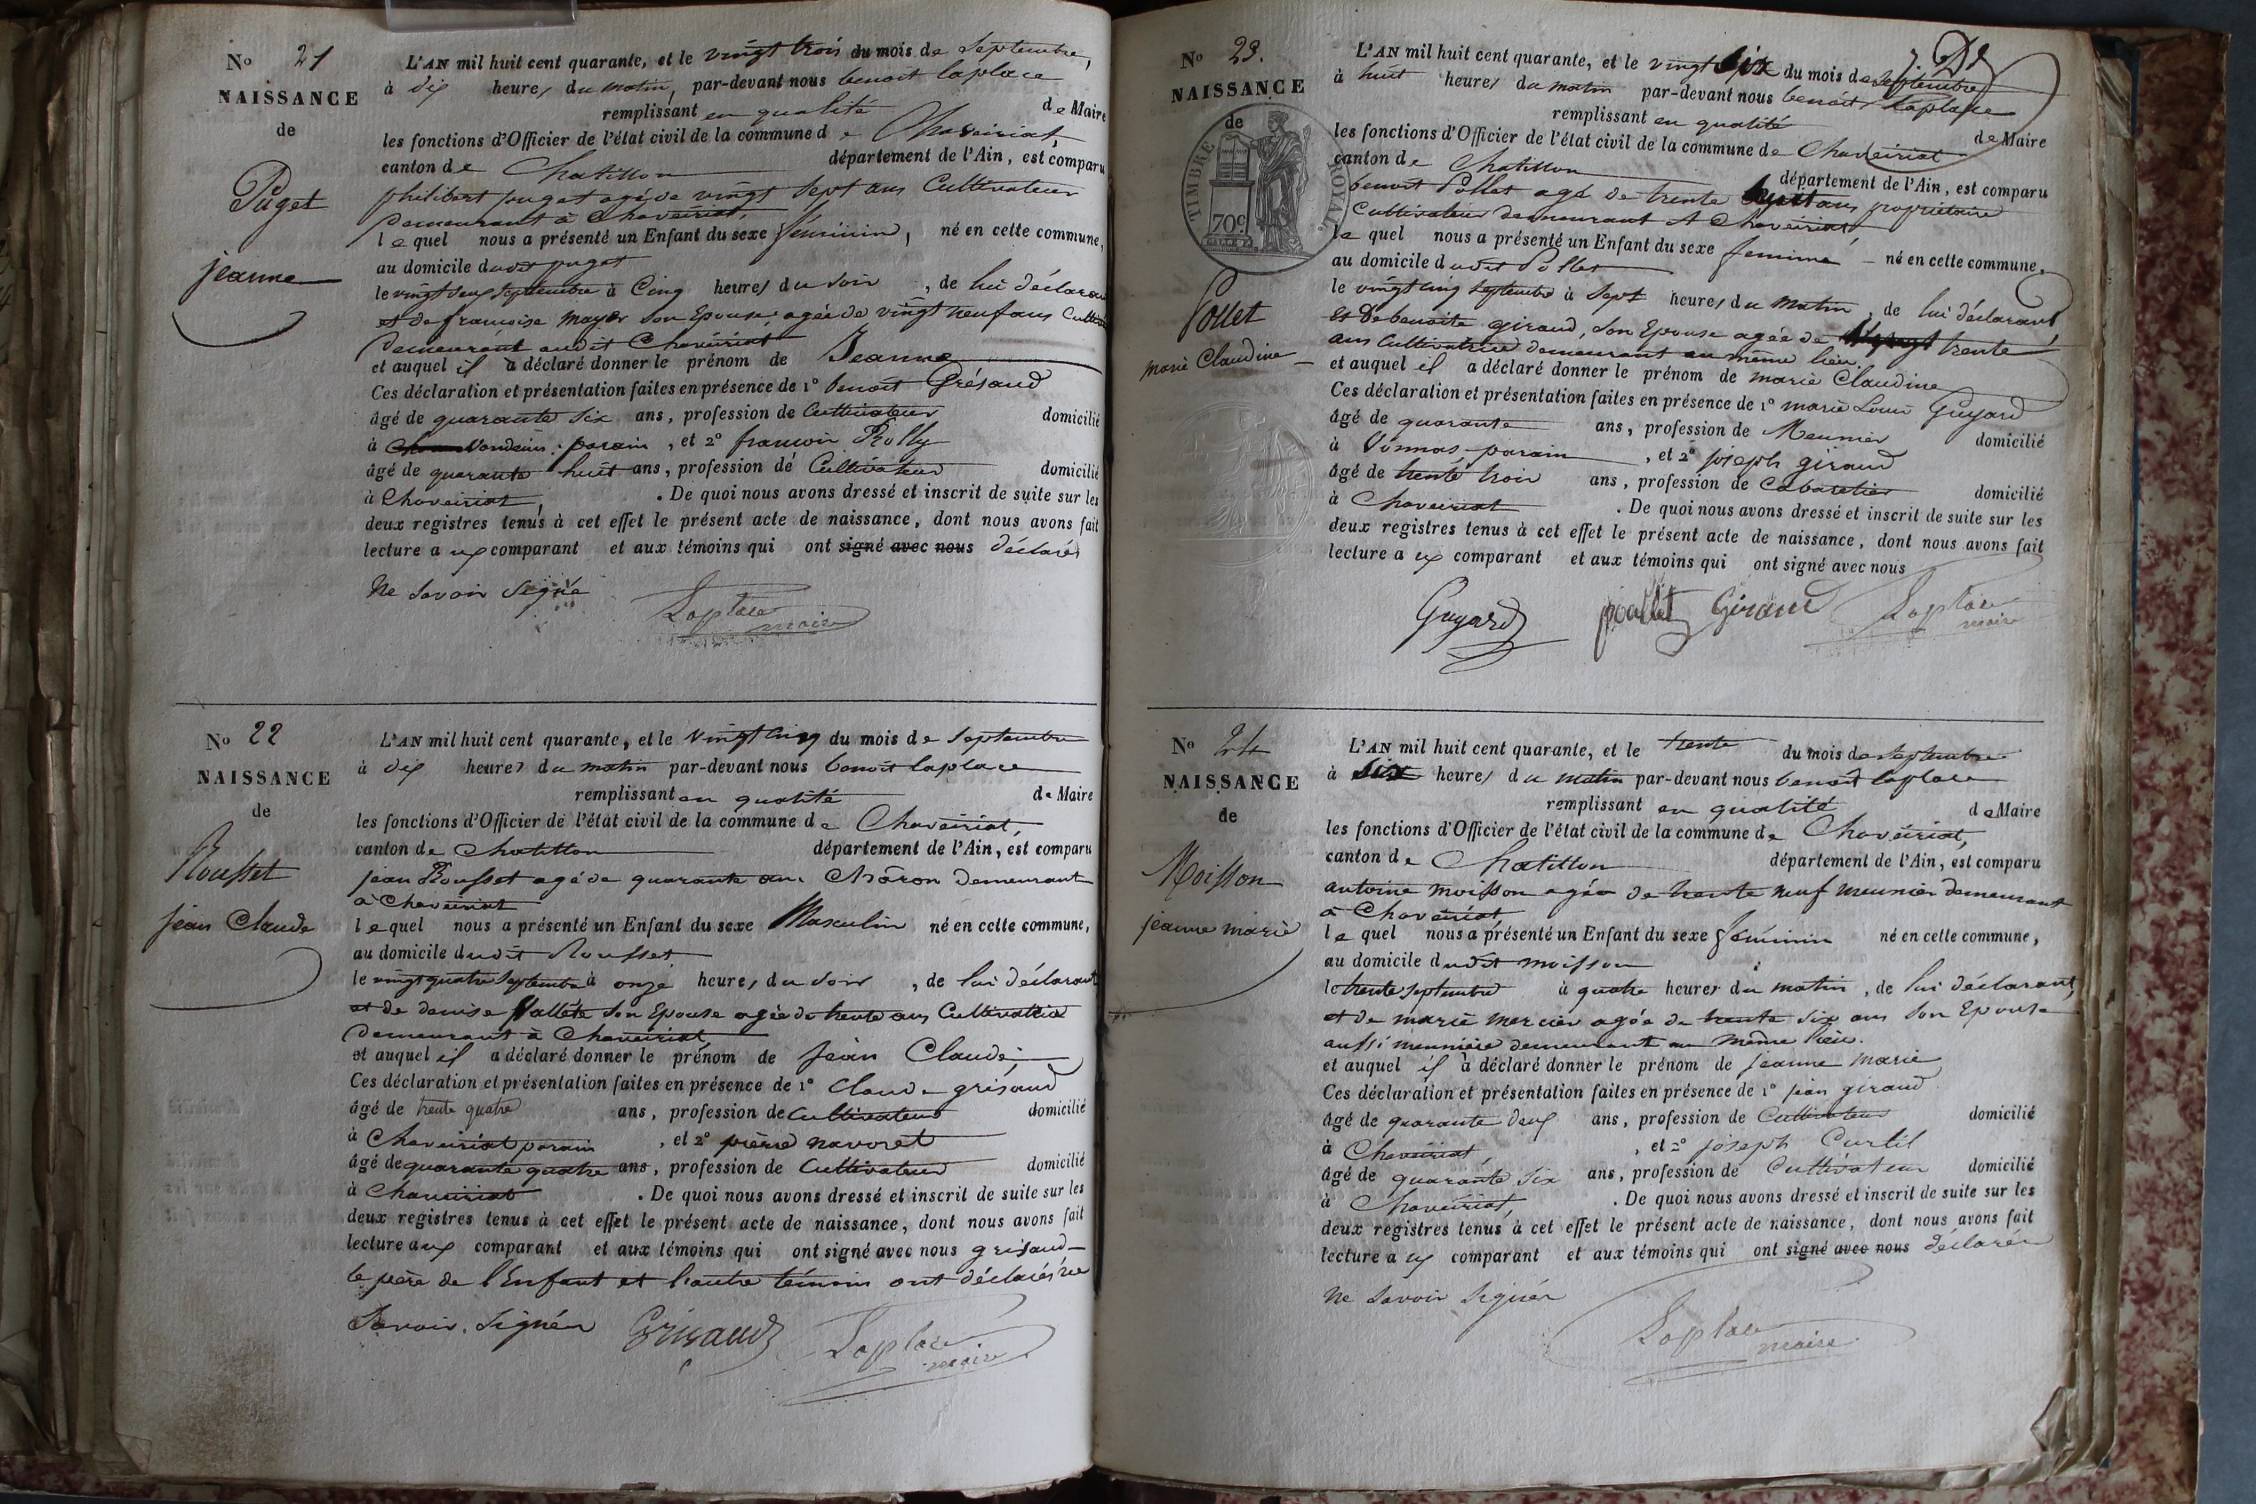 No 21
NAISSANCE
de
Puget
jeanne
L'AN mil huit cent quarante, et le vingt trois du mois de Septembre,
à dix heures du matin, par-devant nous benoit laplace
remplissant en qualité de Maire
les fonctions d'Officier de l'état civil de la commune de Chaveiriat,
canton de Chatillon département de l'Ain, est comparu
philibert puget agé de vingt sept ans Cultivateur
demeurant à Chaveiriat,
lequel nous a présenté un Enfant du sexe féminin, né en cette commune,
au domicile dudit puget
le vingt deux septembre à Cinq heures du soir, de lui déclarant
et de francoise mayer son Epouse agée de vingt neuf ans
demeurant audit Chaveiriat
et auquel il a déclaré donner le prénom de Jeanne
Ces déclaration et présentation faites en présence de 1° benoit Grésaud
âgé de quarante six ans, profession de Cultivateur domicilié
à Vandeins parain, et 2° francois Rolly
âgé de quarante huit ans, profession de Cultivateur domicilié
à Chaveiriat, . De quoi nous avons dressé et inscrit de suite sur les
deux registres tenus à cet effet le présent acte de naissance, dont nous avons fait
lecture aux comparant et aux témoins qui ont signé avec nous déclarés
Ne savoir signé
Laplace
maire
No 22
NAISSANCE
de
Rousset
jean Claude
L'AN mil huit cent quarante, et le vingt cinq du mois de Septembre
à dix heures du matin par-devant nous benoit laplace
remplissant en qualité de Maire
les fonctions d'Officier de l'état civil de la commune de Chaveiriat,
canton de Chatillon département de l'Ain, est comparu
jean Rousset agé de quarante ans Charon demeurant
à Chaveiriat
lequel nous a présenté un Enfant du sexe Masculin né en cette commune,
au domicile dudit Rousset
le vingt quatre septembre à onze heures du soir, de lui déclarant
et de denise Valléte son Epouse agée de trente ans Cultivatrice
demeurant à Chaveiriat,
et auquel il a déclaré donner le prénom de jean Claude
Ces déclaration et présentation faites en présence de 1° Claude grisaud
âgé de trente quatre ans, profession de Cultivateur domicilié
à Chaveiriat parain, et 2° pierre navoret
âgé de quarante quatre ans, profession de Cultivateur domicilié
à Chaveiriat . De quoi nous avons dressé et inscrit de suite sur les
deux registres tenus à cet effet le présent acte de naissance, dont nous avons fait
lecture aux comparant et aux témoins qui ont signé avec nous grisaud
le père de l'Enfant et l'autre témoin ont déclarés ne
Savoir Signér Grisaud Laplace
maire
No 23.
NAISSANCE
de
TIMBRE ROYAL
70c
Pollet
marie Claudine
L'AN mil huit cent quarante, et le vingt six du mois de septembre
à huit heures du matin par-devant nous benoit laplace
remplissant en qualité de Maire
les fonctions d'Officier de l'état civil de la commune de Chaveiriat
canton de Chatillon département de l'Ain, est comparu
benoit Pollet agé de trente ans propriétaire
Cultivateur demeurant A Chaveiriat
lequel nous a présenté un Enfant du sexe feminine né en cette commune,
au domicile dudit Pollet
le vingt cinq septembre à sept heures du matin, de lui déclarant
Et De benoite giraud, son Epouse agée de trente
ans Cultivatrice demeurant au même lieu.
et auquel il a déclaré donner le prénom de marie Claudine
Ces déclaration et présentation faites en présence de 1° marie Louis Guyard
âgé de quarante ans, profession de Meunier domicilié
à Vonnas parain, et 2° joseph giraud
âgé de trente trois ans, profession de Cabaretier domicilié
à Chaveiriat . De quoi nous avons dressé et inscrit de suite sur les
deux registres tenus à cet effet le présent acte de naissance, dont nous avons fait
lecture aux comparant et aux témoins qui ont signé avec nous
Guyard poullet Giraud Laplace
maire
No 24
NAISSANCE
de
Moisson
jeanne marie
L'AN mil huit cent quarante, et le trente du mois de septembre
à six heures du matin par-devant nous benoit laplace
remplissant en qualité de Maire
les fonctions d'Officier de l'état civil de la commune de Chaveiriat,
canton de Chatillon département de l'Ain, est comparu
antoine moisson agée de trente neuf meunier demeurant
à Chaveiriat,
lequel nous a présenté un Enfant du sexe féminin né en cette commune,
au domicile dudit moisson
le trente septembre à quatre heures du matin, de lui déclarant,
et de marie mercier agée de trente six ans son Epouse
aussi meunière demeurant au même lieu.
et auquel il a déclaré donner le prénom de jeanne marie
Ces déclaration et présentation faites en présence de 1° jean giraud
âgé de quarante deux ans, profession de Cultivateur domicilié
à Chaveiriat, , et 2° joseph Curtil
âgé de quarante six ans, profession de Cultivateur domicilié
à Chaveiriat, . De quoi nous avons dressé et inscrit de suite sur les
deux registres tenus à cet effet le présent acte de naissance, dont nous avons fait
lecture aux comparant et aux témoins qui ont signé avec nous déclarés
Ne savoir signér
Laplace
maire